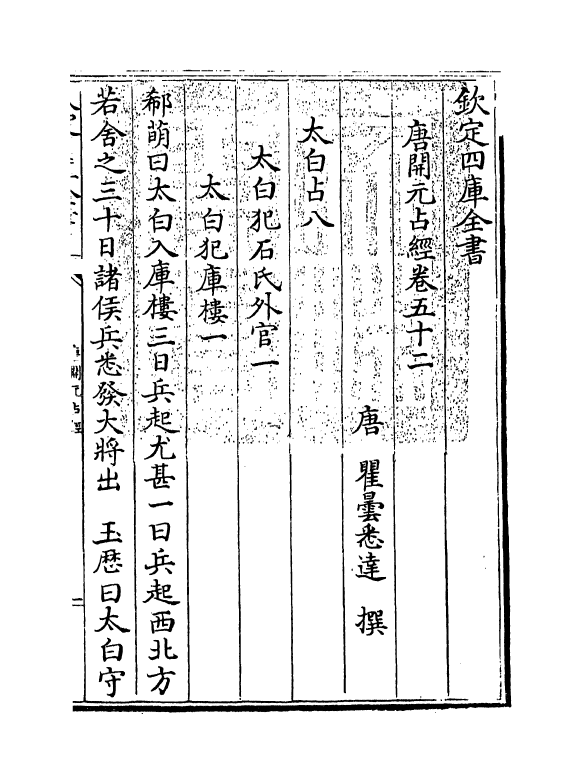 欽定四庫全書
唐開元占經卷五十二
唐 瞿曇悉達 撰
太白占八
太白犯石氏外官一
太白犯庫樓一
郗萌曰太白入庫樓三日兵起尤甚一曰兵起西北方
若舍之三十日諸侯兵悉發大將出 玉厯曰太白守